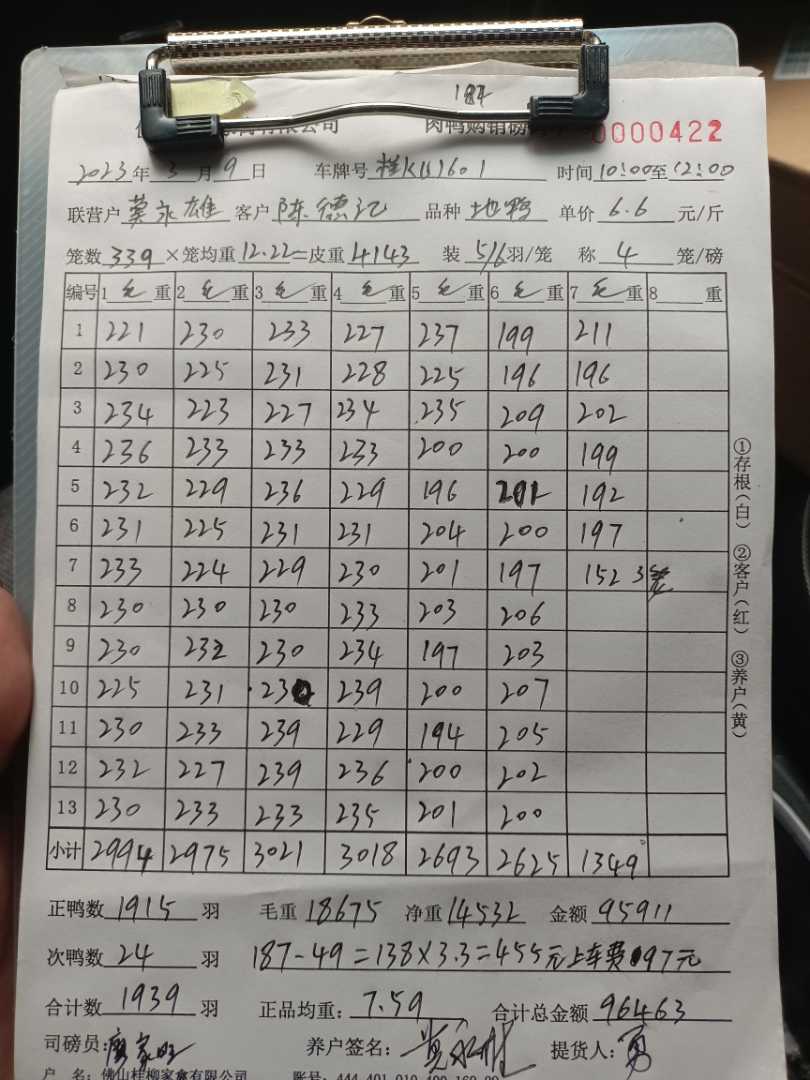 184
有限公司 肉鸭购销磅 0000422
2023年3月9日 车牌号 桂KU1601 时间10:00至12:00
联营户 莫永雄 客户 陈德记 品种 地鸭 单价 6.6 元/斤
笼数 339 ×笼均重 12.22 =皮重 4143 装 5/6 羽/笼 称 4 笼/磅
编号 1 毛 重 2 毛 重 3 毛 重 4 毛 重 5 毛 重 6 毛 重 7 毛 重 8 重
1 221 230 233 227 237 199 211
2 230 225 231 228 225 196 196
3 234 223 227 234 235 209 202
4 236 233 233 233 200 200 199
5 232 229 236 229 196 201 192
6 231 225 231 231 204 200 197
7 233 224 229 230 201 197 152 3笼
8 230 230 230 233 203 206
9 230 232 230 234 197 203
10 225 231 230 239 200 207
11 230 233 239 229 194 205
12 232 227 239 236 200 202
13 230 233 233 235 201 200
小计 2994 2975 3021 3018 2693 2625 1349
①存根(白) ②客户(红) ③养户(黄)
正鸭数 1915 羽 毛重 18675 净重 14532 金额 95911
次鸭数 24 羽 187-49=138×3.3=455元上车费97元
合计数 1939 羽 正品均重: 7.59 合计总金额 96463
司磅员: 养户签名: 提货人:
户 名: 佛山桂柳家禽有限公司 账号: